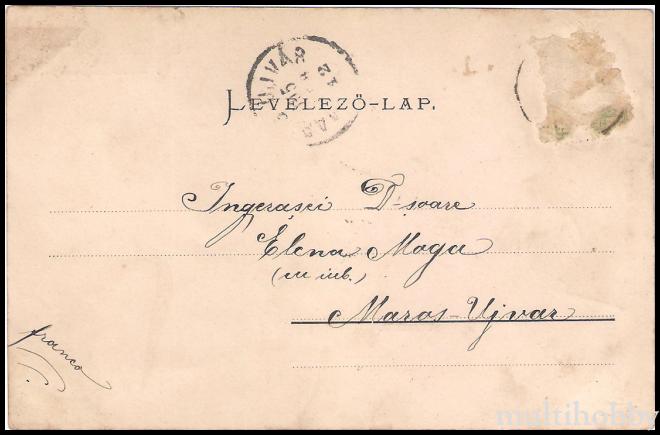 LEVELEZŐ-LAP.
Ingerașei D-șoare
Elena Moga
(cu iub.)
Maros-Ujvar
franco
multihobby